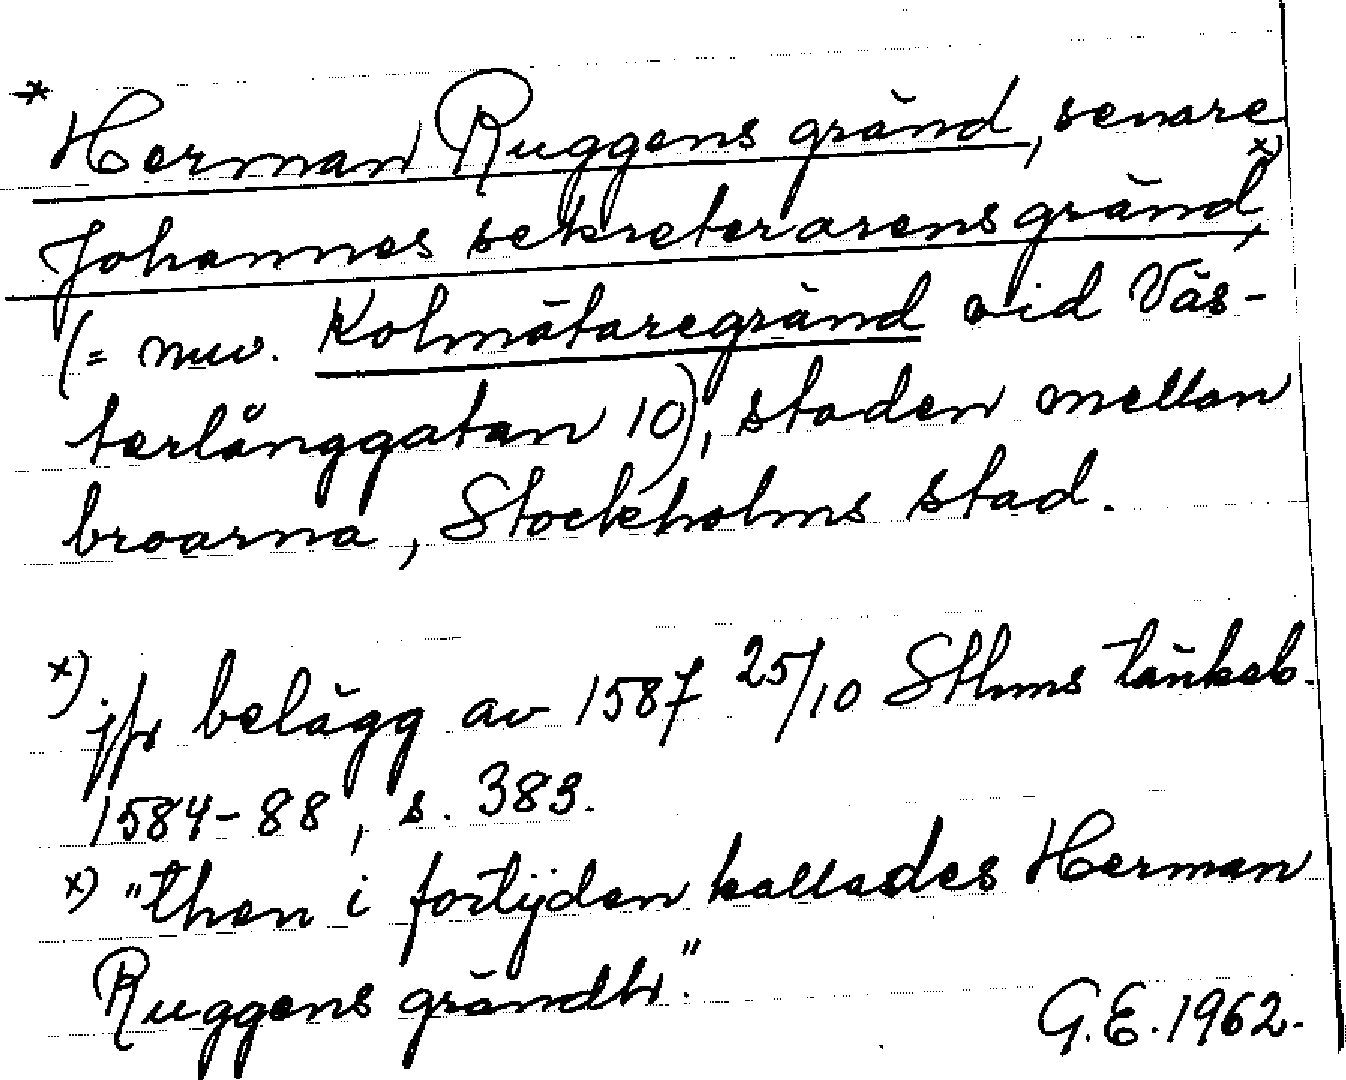 * Herman Ruggens gränd, senare
Johannes sekreterarens gränd, x)
(= nuv. Kolmätaregränd vid Väs-
terlånggatan 10), staden mellan
broarna, Stockholms stad.
x) jfr belägg av 1587 25/10 Sthms tänkeb.
1584-88, s. 383.
x) "then i fortijden kallades Herman
Ruggens grändh".
G.E. 1962.